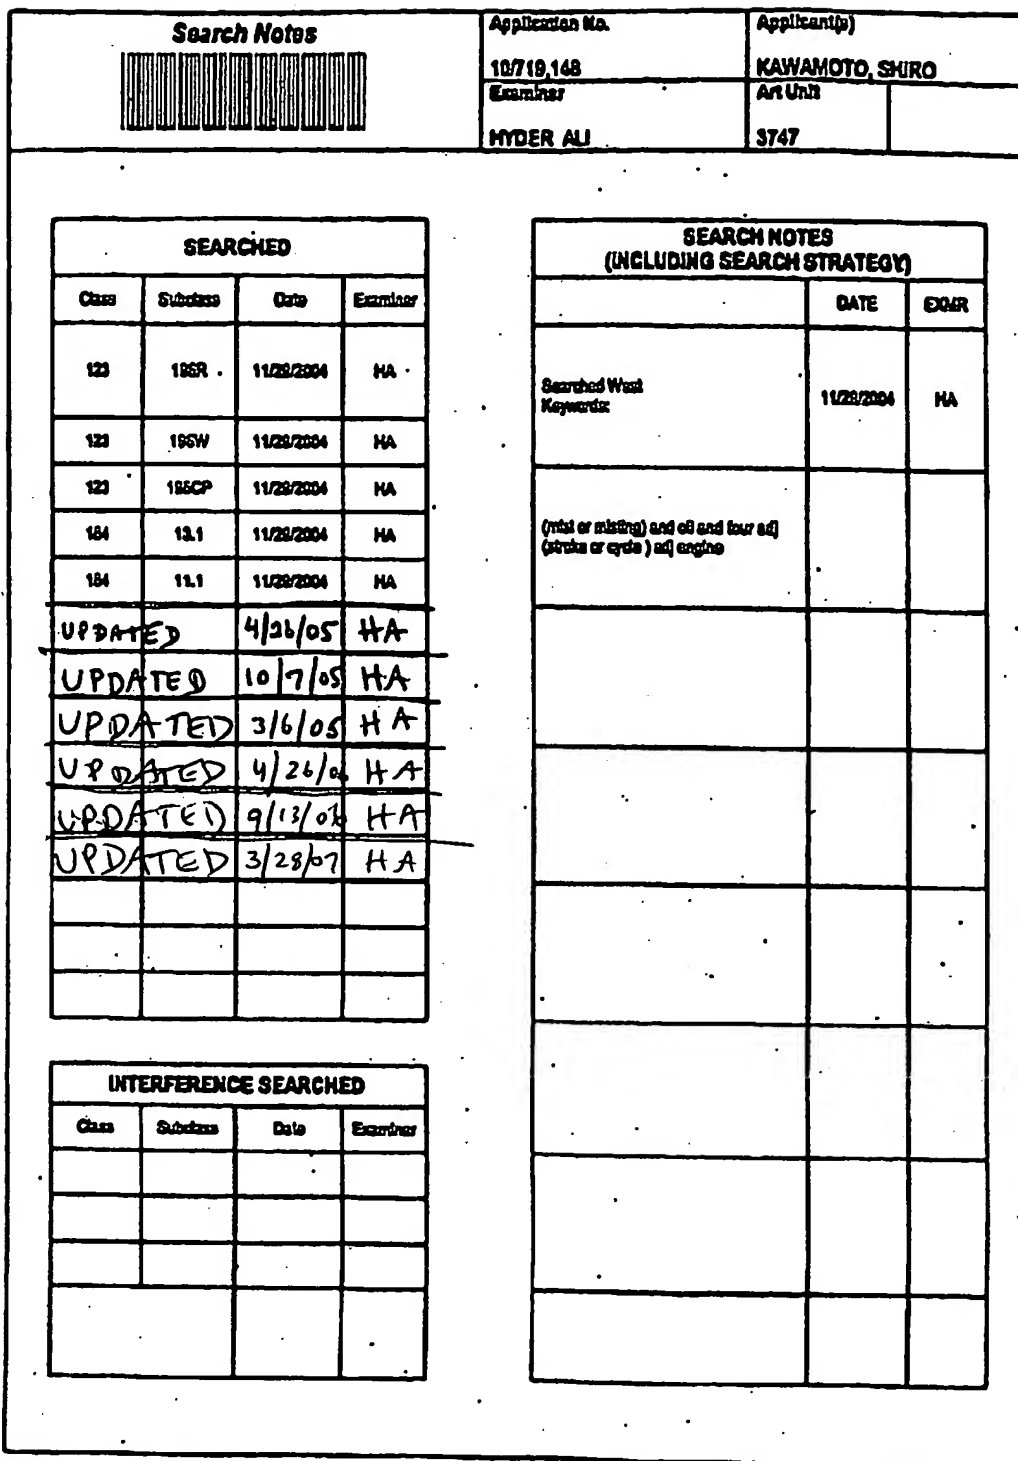 Search Notes
Application No.
10/719,148
Applicant(s)
KAWAMOTO, SHIRO
Examiner
HYDER ALI
Art Unit
3747
SEARCHED
Class Subclass Date Examiner
123 196R 11/29/2004 HA
123 196W 11/29/2004 HA
123 196CP 11/29/2004 HA
184 13.1 11/29/2004 HA
184 11.1 11/29/2004 HA
UPDATED 4/26/05 HA
UPDATED 10/7/05 HA
UPDATED 3/6/05 HA
UPDATED 4/26/06 HA
UPDATED 9/13/06 HA
UPDATED 3/28/07 HA
INTERFERENCE SEARCHED
Class Subclass Date Examiner
SEARCH NOTES
(INCLUDING SEARCH STRATEGY)
DATE EXMR
Searched West
Keywords: 11/29/2004 HA
(mist or misting) and oil and four adj
(stroke or cycle ) adj engine